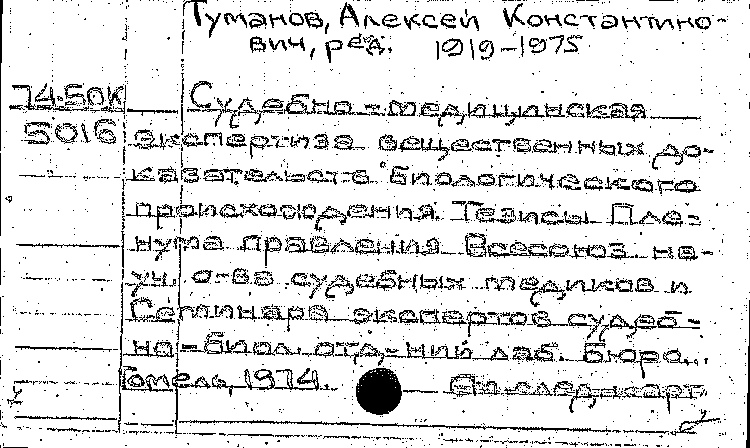 Туманов, Алексей Константино-
вич, ред. 1919-1975
74-50К Судебно-медицинская
5016 экспертиза вещественных до-
казательств биологического
происхождения. Тезисы Пле-
нума правления Всесоюз. на-
уч. о-ва судебных медиков и
Семинара экспертов судеб-
но-биол. отд-ний лаб. бюро...
Гомель, 1974. См. след. карт.